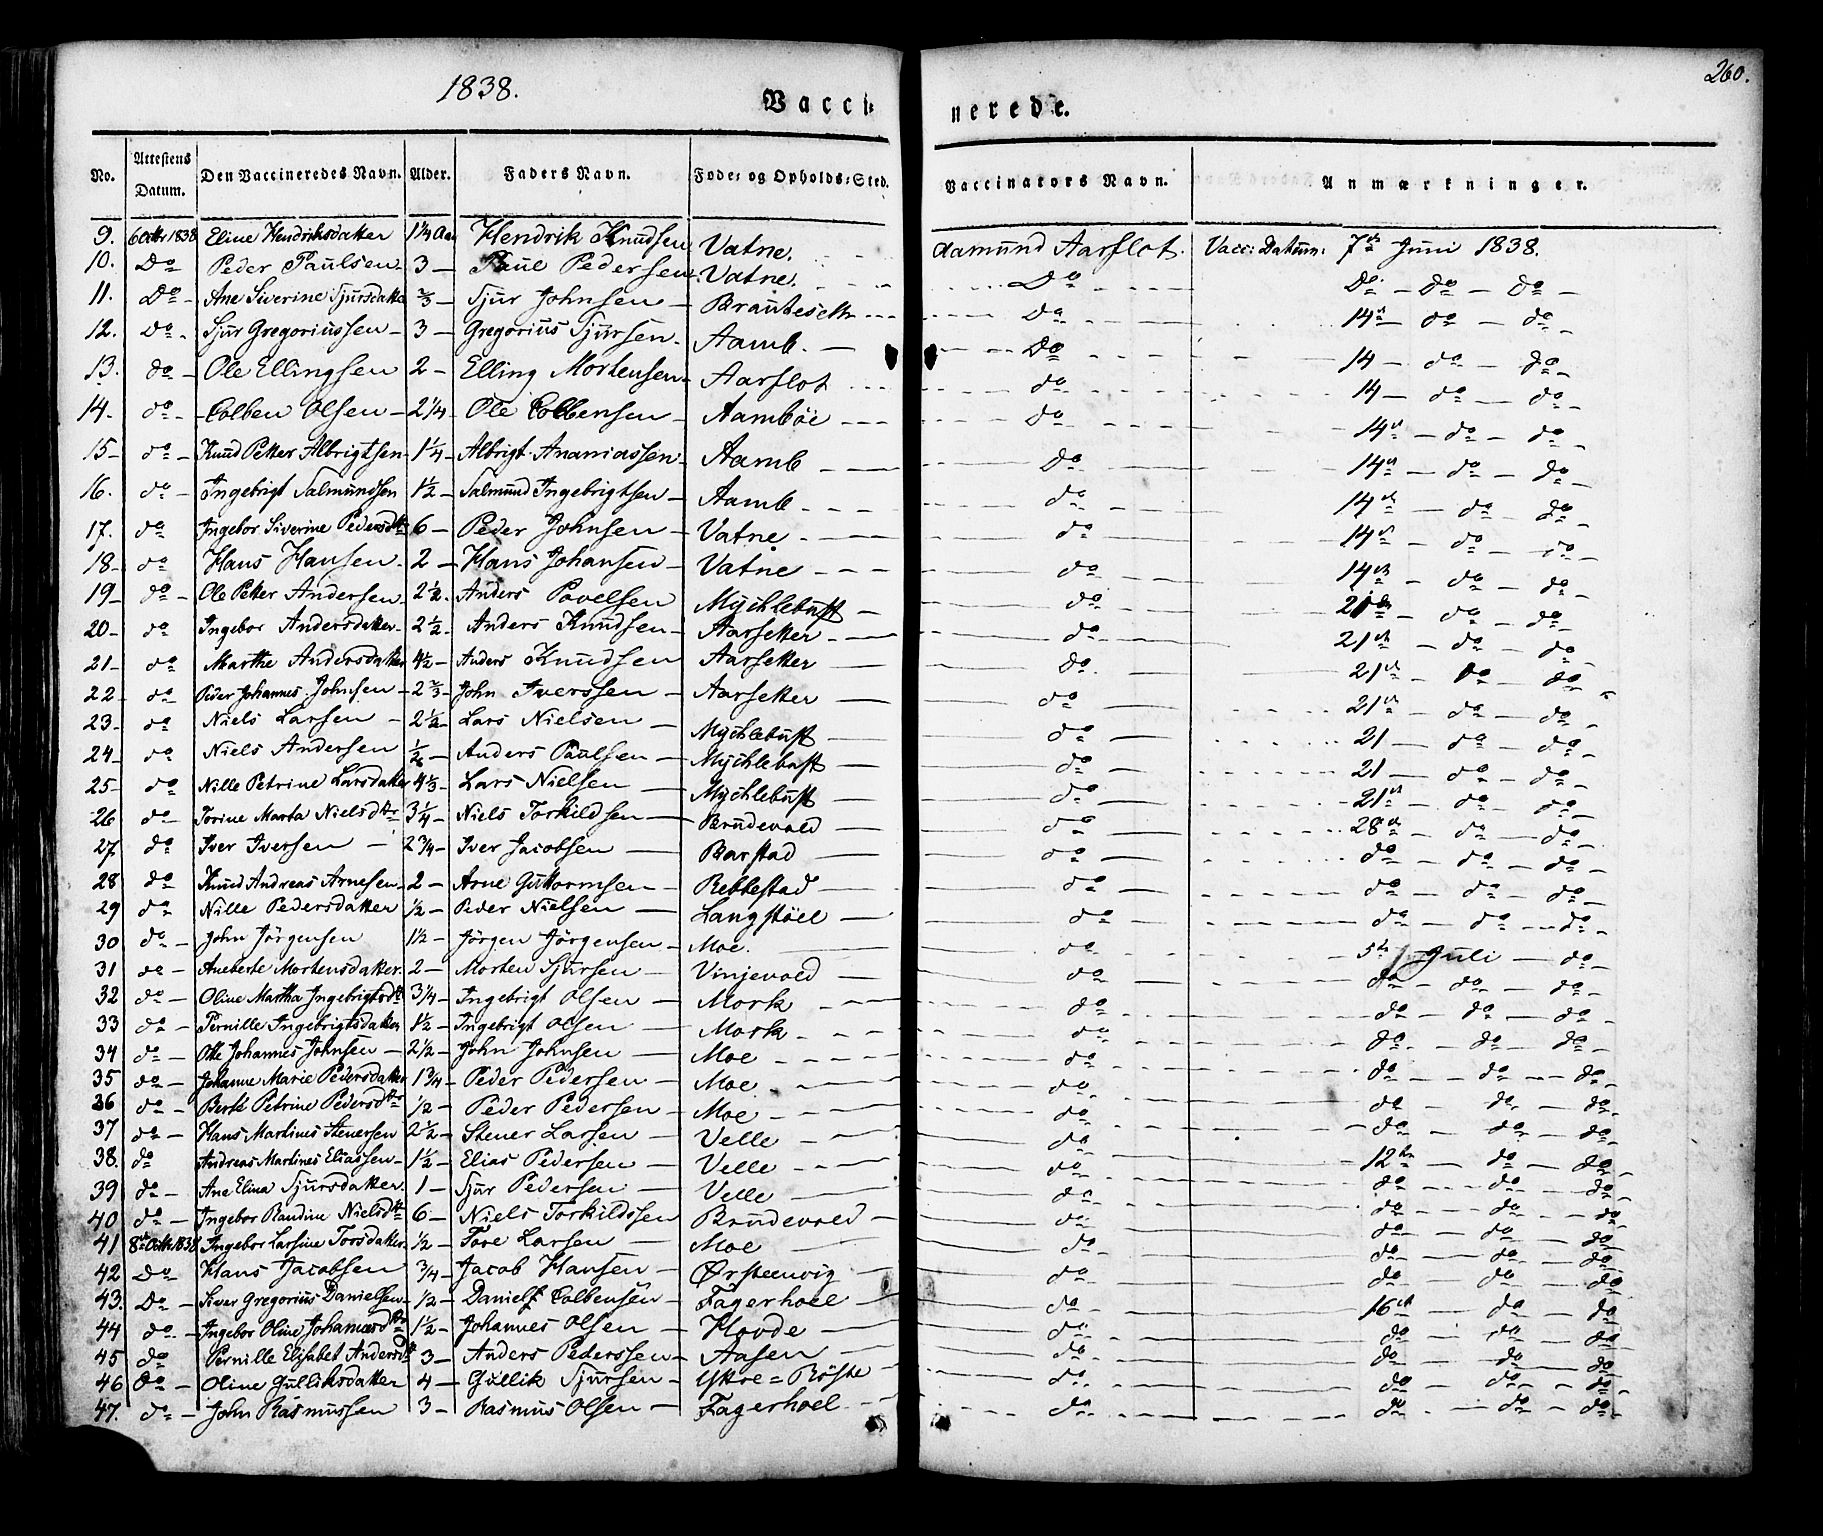 1838.
Vacci-
nerede.
260.
No. Attestens Datum. Den Vaccineredes Navn. Alder. Faders Navn. Føde- og Opholds-Sted. Vaccinators Navn. Anmærkninger.
9. 6 Octbr 1838 Eline Hendriksdatter 1¼ Aar Hendrik Knudsen Vatne. Aamund Aarflot. Vacc: Datum: 7de Juni 1838.
10. Do Peder Paulsen 3 — Paul Pedersen Vatne. Do Do — do — do —
11. Do Ane Siverine Sjursdatter ⅔ — Sjur Johnsen — do 14de — do — do
12. Do Sjur Gregoriussen — 3 — Gregorius Sjursen Aamb. — Do 14 — do — do
13. do — Ole Ellingsen 2 — Elling Mortensen Aarflot do 14 — do — do
14. do — Colben Olsen — 2¼ Ole Colbensen — Aambøe do 14de — do — do
15 — do — Knud Petter Albrigtsen 1¼ — Albrigt Ananiassen Aamb Do 14de — do — do
16. do — Ingebrigt Salmundsen 1½ — Salmund Ingebrigtsen — Aamb do 14de — do — do
17. do — Ingebor Siverine Pedersdtr 6 — Peder Johnsen — Vatne do 14de — do — do
18 — do Hans Hansen 2 — Hans Johansen — Vatne do 14de — do — do
19 — do — Ole Petter Andersen 2½ Anders Povelsen Mychlebust — do 21de — do — do
20 — do — Ingebor Andersdatter 2½ Anders Knudsen — Aarsetter do 21de — do — do
21 — do Marthe Andersdatter 4½ — Anders Knudsen Aarsetter — do 21de — do — do
22 — do Peder Johannes Johnsen — 2⅔ — John Iverssen — Aarsetter — do 21de — do — do
23 — do Niels Larsen — 2½ Lars Nielsen — Mychlebust — do 21 — do — do
24 — do Niels Andersen ½ — Anders Paulsen — Mychlebust — do 21 — do — do
25 — do Nille Petrine Larsdatter 4⅓ — Lars Nielsen — Mychlebust — do 21de — do — do
26 do — Torine Marta Nielsdtr 3¼ — Niels Torkildsen — Brudevold — do 28de — do — do
27 do Iver Iversen — 2¾ — Iver Jacobsen — Barstad — do do — do — do
28 do Knud Andreas Arnesen 2 — Arne Guttormsen — Rebbestad — do do — do — do
29 do Nille Pedersdatter ½ — Peder Nielsen — Langstøel — do do — do — do
30 do — John Jörgensen 1½ — Jörgen Jörgensen — Moe. do 5te Juli — do
31 do — Aneberte Mortensdatter 2 — Morten Sjursen — Vinjevold — do do — do — do
32 do — Oline Martha Ingebrigtsdtr 3¼ — Ingebrigt Olsen — Mork do do — do — do
33 do — Pernille Ingebrigtsdatter 1½ — Ingebrigt Olsen — Mork do do — do — do
34 do — Ole Johannes Johnsen — 2½ — John Johnsen — Moe do do — do — do
35 do — Johanne Marie Pedersdatter 1¾ — Peder Pedersen — Moe do do — do — do
36 do — Berte Petrine Pedersdtr ½ — Peder Pedersen — Moe do do — do — do
37 do — Hans Martines Stenersen 2½ — Stener Larsen — Velle do do — do — do
38. do Andreas Martines Eliassen — 1½ — Elias Pedersen — Velle do 12te — do — do
39 do — Ane Elina Sjursdatter 1 — Sjur Pedersen — Velle do do — do — do
40 do — Ingebor Randine Nielsdtr 6 — Niels Torkildssen Brudevold — do do — do — do
41 8de Octb 1838 Ingebor Larsine Torsdatter ½ — Tore Larsen — Moe do do — do — do
42 Do Hans Jacobsen ¾ — Jacob Hansen — Ørsteenvig do do — do — do
43. Do — Siver Gregorius Danielsen ½ — Daniel Colbensen — Fagerhoel — do 16de — do — do
44 do — Ingebor Oline Johannesdtr 1½ — Johannes Olsen — Hovde — do do — do — do
45 do Pernille Elisabet Andersdtr 3 — Anders Pederssen — Aasen — do do — do — do
46 Do — Oline Gulliksdatter 4 — Gullik Sjursen — Yttre=Røste do do — do — do
47. do — John Rasmussen 3 — Rasmus Olsen — Fagerhoel do do — do — do